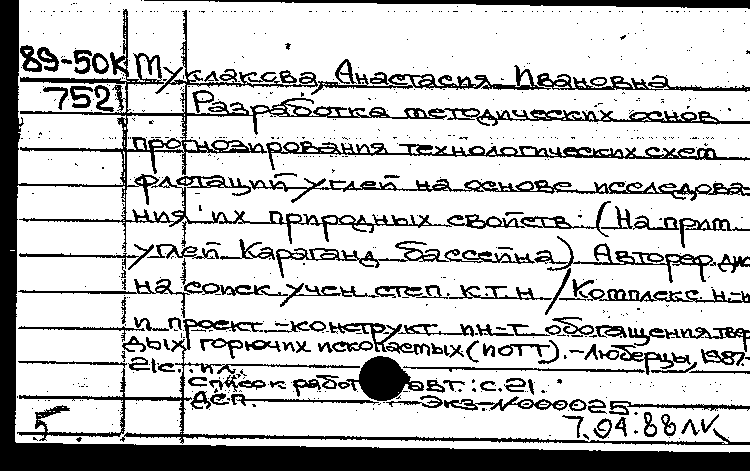 89-50К Туклакова, Анастасия Ивановна
752 Разработка методических основ
прогнозирования технологических схем
флотаций углей на основе исследова-
ния их природных свойств: (На прим.
углей Караганд. бассейна) Автореф. дис
на соиск. учен. степ. к.т.н / Комплекс н-и
и проект.-конструкт. ин-т обогащения твер
дых горючих ископаемых (ИОТТ).-Люберцы, 1987.-
21с.: ил.
Список работ авт.: с.21.
Экз.-N000025
5 7.04.88ЛК